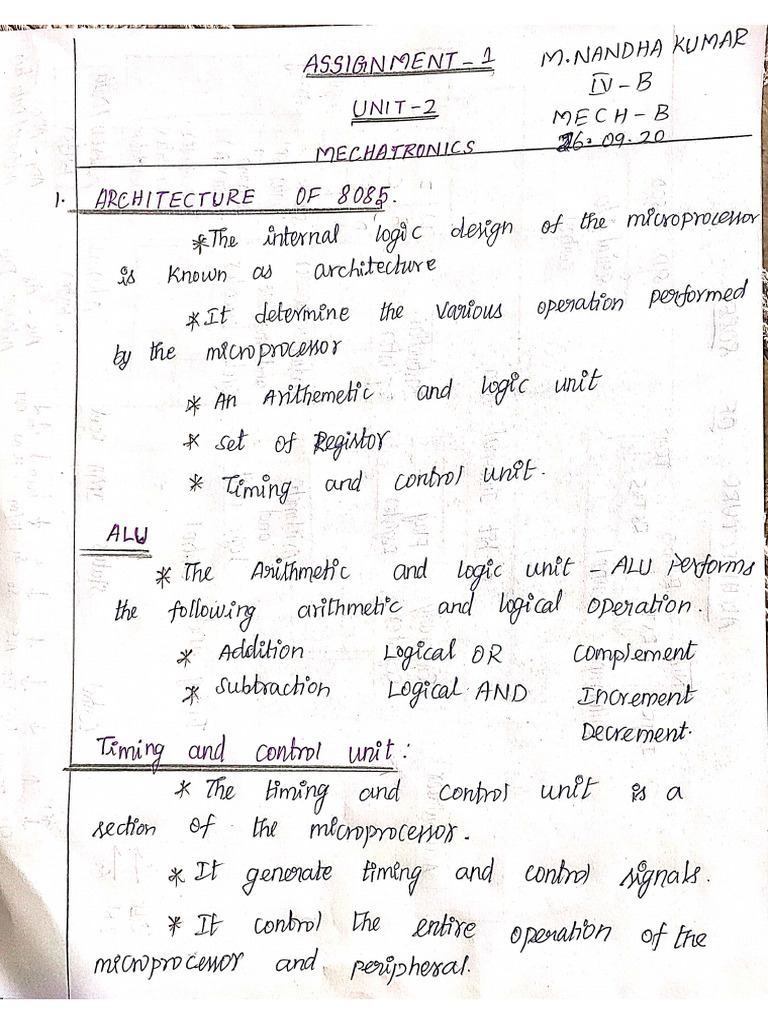 ASSIGNMENT-1
UNIT-2
MECHATRONICS
M.NANDHA KUMAR
IV-B
MECH-B
26.09.20
1. ARCHITECTURE OF 8085.
* The internal logic design of the microprocessor
is known as architecture
* It determine the various operation performed
by the microprocessor
* An Arithemetic and logic unit
* set of Registor
* Timing and control unit.
ALU
* The Arithmetic and logic unit - ALU Performs
the following arithmetic and logical operation.
* Addition Logical OR Complement
* Subtraction Logical AND Increment
Decrement.
Timing and control unit:
* The timing and control unit is a
section of the microprocessor.
* It generate timing and control signals.
* It control the entire operation of the
microprocessor and peripheral.